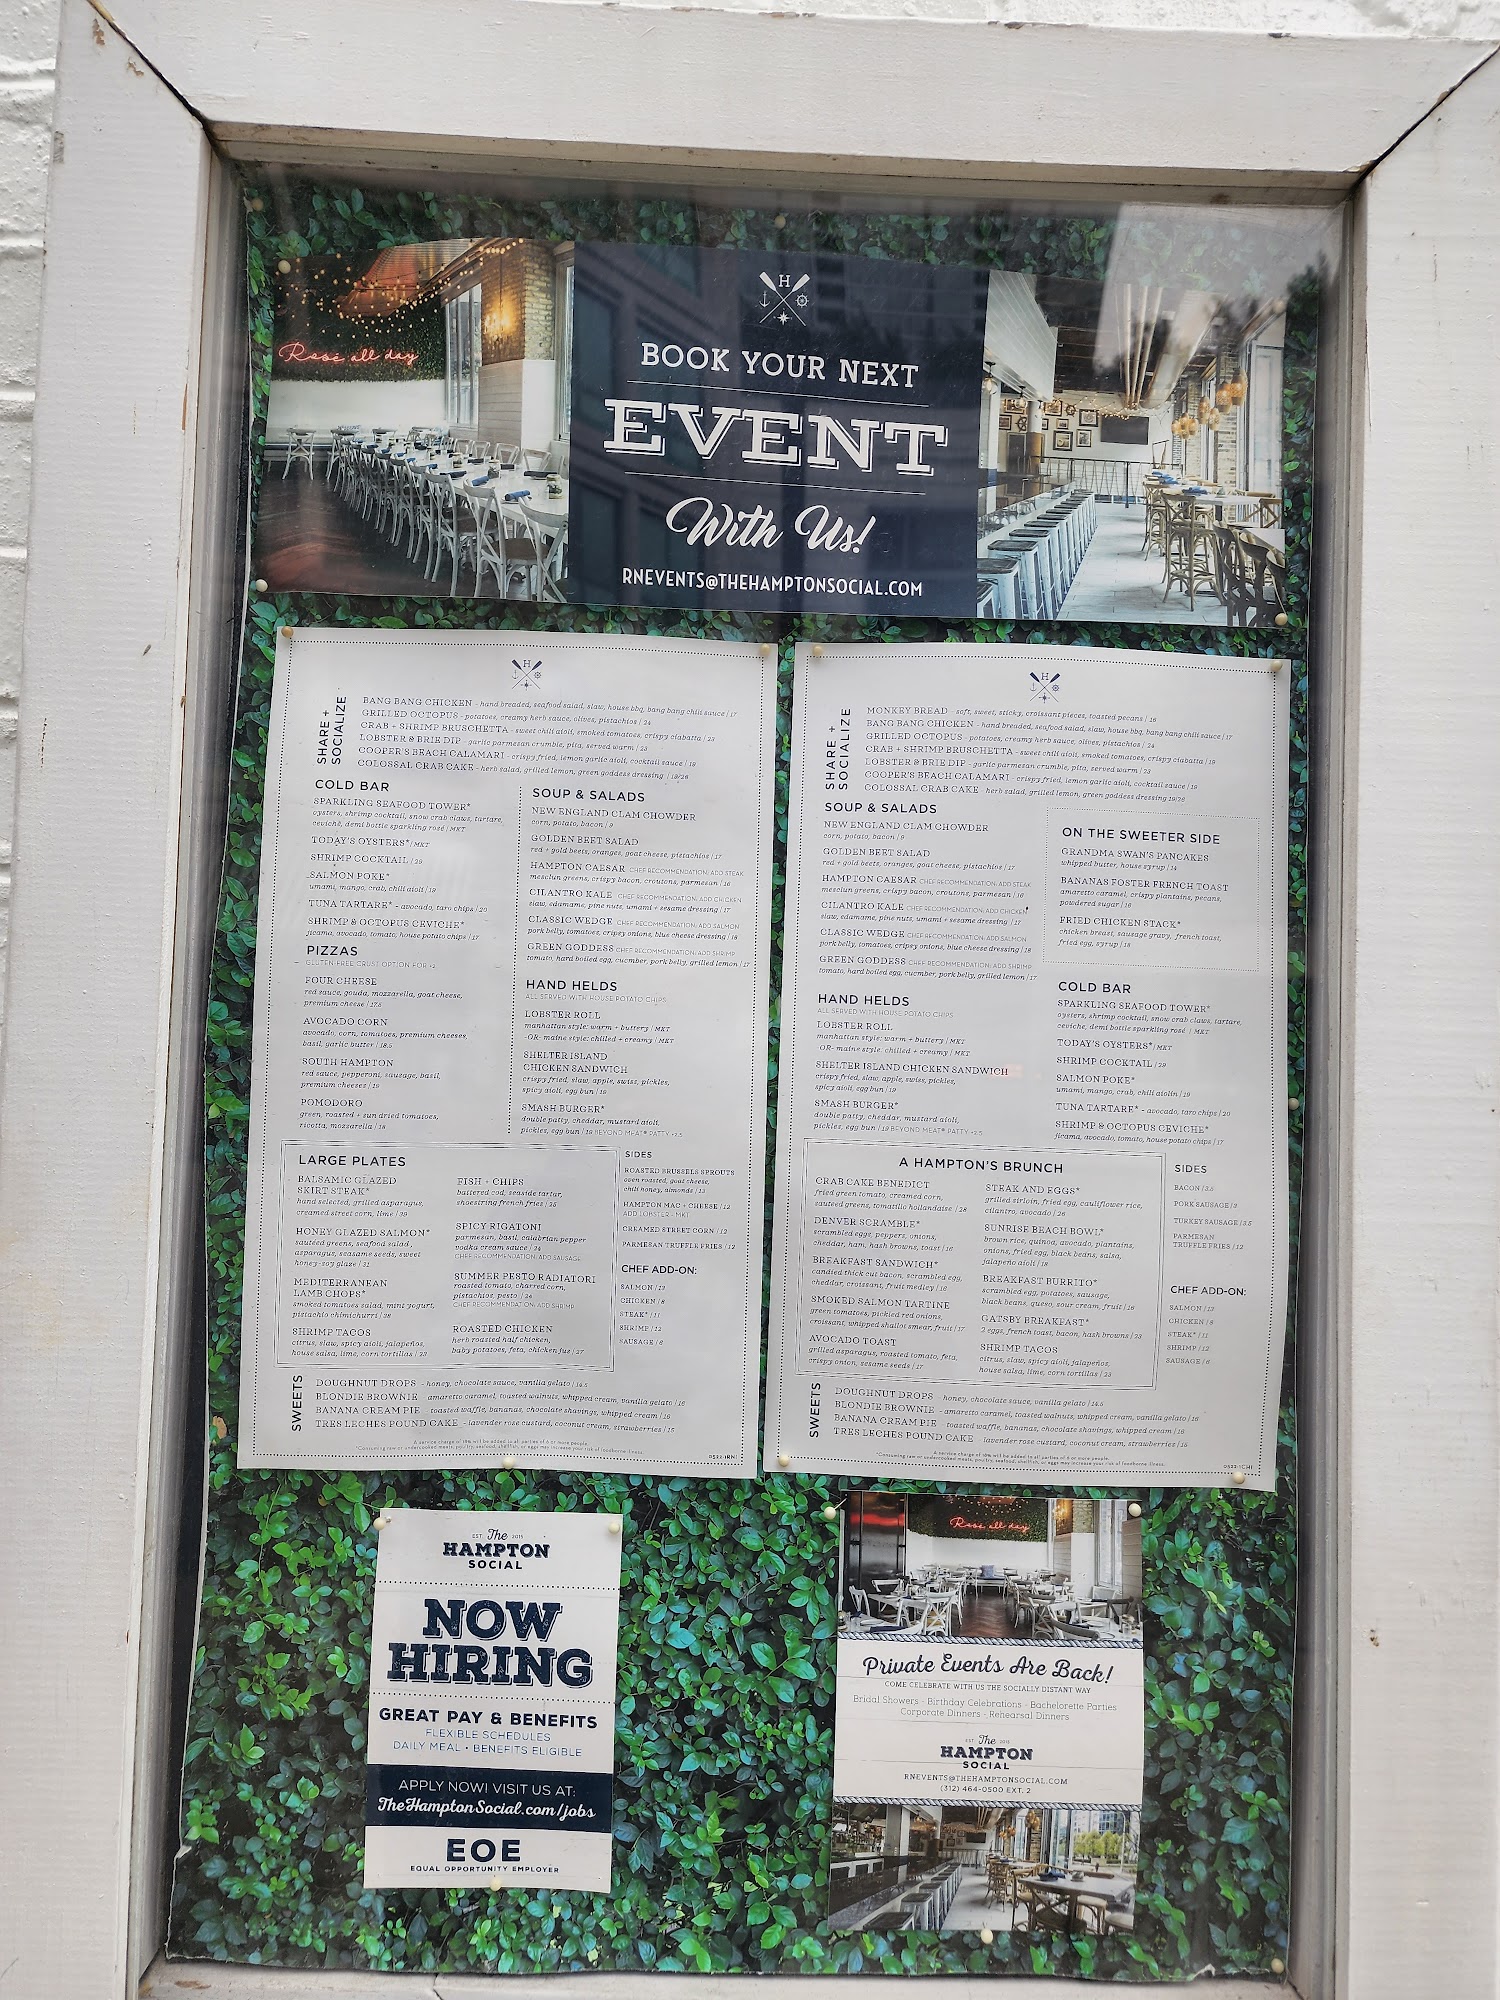 Rosé all day
H
BOOK YOUR NEXT
EVENT
With Us!
RNEVENTS@THEHAMPTONSOCIAL.COM
H
SHARE +
SOCIALIZE
BANG BANG CHICKEN - hand breaded, seafood salad, slaw, house bbq, bang bang chili sauce | 17
GRILLED OCTOPUS - potatoes, creamy herb sauce, olives, pistachios | 24
CRAB + SHRIMP BRUSCHETTA - sweet chili aioli, smoked tomatoes, crispy ciabatta | 23
LOBSTER & BRIE DIP - garlic parmesan crumble, pita, served warm | 23
COOPER'S BEACH CALAMARI - crispy fried, lemon garlic aioli, cocktail sauce | 19
COLOSSAL CRAB CAKE - herb salad, grilled lemon, green goddess dressing | 19/26
COLD BAR
SPARKLING SEAFOOD TOWER*
oysters, shrimp cocktail, snow crab claws, tartare,
ceviche, demi bottle sparkling rosé | MKT
TODAY'S OYSTERS* | MKT
SHRIMP COCKTAIL | 29
SALMON POKE*
umami, mango, crab, chili aioli | 19
TUNA TARTARE* - avocado, taro chips | 20
SHRIMP & OCTOPUS CEVICHE*
jicama, avocado, tomato, house potato chips | 17
PIZZAS
GLUTEN-FREE CRUST OPTION FOR +2
FOUR CHEESE
red sauce, gouda, mozzarella, goat cheese,
premium cheese | 17.5
AVOCADO CORN
avocado, corn, tomatoes, premium cheeses,
basil, garlic butter | 18.5
SOUTH HAMPTON
red sauce, pepperoni, sausage, basil,
premium cheeses | 19
POMODORO
green, roasted + sun dried tomatoes,
ricotta, mozzarella | 18
SOUP & SALADS
NEW ENGLAND CLAM CHOWDER
corn, potato, bacon | 9
GOLDEN BEET SALAD
red + gold beets, oranges, goat cheese, pistachios | 17
HAMPTON CAESAR CHEF RECOMMENDATION: ADD STEAK
mesclun greens, crispy bacon, croutons, parmesan | 16
CILANTRO KALE CHEF RECOMMENDATION: ADD CHICKEN
slaw, edamame, pine nuts, umami + sesame dressing | 17
CLASSIC WEDGE CHEF RECOMMENDATION: ADD SALMON
pork belly, tomatoes, cripsy onions, blue cheese dressing | 18
GREEN GODDESS CHEF RECOMMENDATION: ADD SHRIMP
tomato, hard boiled egg, cucmber, pork belly, grilled lemon | 17
HAND HELDS
ALL SERVED WITH HOUSE POTATO CHIPS
LOBSTER ROLL
manhattan style: warm + buttery | MKT
-OR- maine style: chilled + creamy | MKT
SHELTER ISLAND
CHICKEN SANDWICH
crispy fried, slaw, apple, swiss, pickles,
spicy aioli, egg bun | 19
SMASH BURGER*
double patty, cheddar, mustard aioli,
pickles, egg bun | 19 BEYOND MEAT® PATTY +2.5
LARGE PLATES
BALSAMIC GLAZED
SKIRT STEAK*
hand selected, grilled asparagus,
creamed street corn, lime | 39
HONEY GLAZED SALMON*
sautéed greens, seafood salad,
asparagus, seasame seeds, sweet
honey-soy glaze | 31
MEDITERRANEAN
LAMB CHOPS*
smoked tomatoes salad, mint yogurt,
pistachio chimichurri | 38
SHRIMP TACOS
citrus, slaw, spicy aioli, jalapeños,
house salsa, lime, corn tortillas | 23
FISH + CHIPS
battered cod, seaside tartar,
shoestring french fries | 25
SPICY RIGATONI
parmesan, basil, calabrian pepper
vodka cream sauce | 24
CHEF RECOMMENDATION: ADD SAUSAGE
SUMMER PESTO RADIATORI
roasted tomato, charred corn,
pistachios, pesto | 24
CHEF RECOMMENDATION: ADD SHRIMP
ROASTED CHICKEN
herb roasted half chicken,
baby potatoes, feta, chicken jus | 27
SIDES
ROASTED BRUSSELS SPROUTS
oven roasted, goat cheese,
chili honey, almonds | 13
HAMPTON MAC + CHEESE | 12
ADD LOBSTER + MKT
CREAMED STREET CORN | 12
PARMESAN TRUFFLE FRIES | 12
CHEF ADD-ON:
SALMON | 13
CHICKEN | 8
STEAK* | 11
SHRIMP | 12
SAUSAGE | 6
SWEETS
DOUGHNUT DROPS - honey, chocolate sauce, vanilla gelato | 14.5
BLONDIE BROWNIE - amaretto caramel, toasted walnuts, whipped cream, vanilla gelato | 16
BANANA CREAM PIE - toasted waffle, bananas, chocolate shavings, whipped cream | 16
TRES LECHES POUND CAKE - lavender rose custard, coconut cream, strawberries | 15
A service charge of 18% will be added to all parties of 6 or more people.
*Consuming raw or undercooked meats, poultry, seafood, shellfish, or eggs may increase your risk of foodborne illness.
0522-1RN1
H
SHARE +
SOCIALIZE
MONKEY BREAD - soft, sweet, sticky, croissant pieces, toasted pecans | 16
BANG BANG CHICKEN - hand breaded, seafood salad, slaw, house bbq, bang bang chili sauce | 17
GRILLED OCTOPUS - potatoes, creamy herb sauce, olives, pistachios | 24
CRAB + SHRIMP BRUSCHETTA - sweet chili aioli, smoked tomatoes, crispy ciabatta | 19
LOBSTER & BRIE DIP - garlic parmesan crumble, pita, served warm | 23
COOPER'S BEACH CALAMARI - crispy fried, lemon garlic aioli, cocktail sauce | 19
COLOSSAL CRAB CAKE - herb salad, grilled lemon, green goddess dressing 19/26
SOUP & SALADS
NEW ENGLAND CLAM CHOWDER
corn, potato, bacon | 9
GOLDEN BEET SALAD
red + gold beets, oranges, goat cheese, pistachios | 17
HAMPTON CAESAR CHEF RECOMMENDATION: ADD STEAK
mesclun greens, crispy bacon, croutons, parmesan | 16
CILANTRO KALE CHEF RECOMMENDATION: ADD CHICKEN
slaw, edamame, pine nuts, umami + sesame dressing | 17
CLASSIC WEDGE CHEF RECOMMENDATION: ADD SALMON
pork belly, tomatoes, cripsy onions, blue cheese dressing | 18
GREEN GODDESS CHEF RECOMMENDATION: ADD SHRIMP
tomato, hard boiled egg, cucmber, pork belly, grilled lemon | 17
HAND HELDS
ALL SERVED WITH HOUSE POTATO CHIPS
LOBSTER ROLL
manhattan style: warm + buttery | MKT
-OR- maine style: chilled + creamy | MKT
SHELTER ISLAND CHICKEN SANDWICH
crispy fried, slaw, apple, swiss, pickles,
spicy aioli, egg bun | 19
SMASH BURGER*
double patty, cheddar, mustard aioli,
pickles, egg bun | 19 BEYOND MEAT® PATTY +2.5
ON THE SWEETER SIDE
GRANDMA SWAN'S PANCAKES
whipped butter, house syrup | 14
BANANAS FOSTER FRENCH TOAST
amaretto caramel, crispy plantains, pecans,
powdered sugar | 16
FRIED CHICKEN STACK*
chicken breast, sausage gravy, french toast,
fried egg, syrup | 18
COLD BAR
SPARKLING SEAFOOD TOWER*
oysters, shrimp cocktail, snow crab claws, tartare,
ceviche, demi bottle sparkling rosé | MKT
TODAY'S OYSTERS* | MKT
SHRIMP COCKTAIL | 29
SALMON POKE*
umami, mango, crab, chili aiolin | 19
TUNA TARTARE* - avocado, taro chips | 20
SHRIMP & OCTOPUS CEVICHE*
jicama, avocado, tomato, house potato chips | 17
A HAMPTON'S BRUNCH
CRAB CAKE BENEDICT
fried green tomato, creamed corn,
sautéed greens, tomatillo hollandaise | 28
DENVER SCRAMBLE*
scrambled eggs, peppers, onions,
cheddar, ham, hash browns, toast | 16
BREAKFAST SANDWICH*
candied thick cut bacon, scrambled egg,
cheddar, croissant, fruit medley | 16
SMOKED SALMON TARTINE
green tomatoes, pickled red onions,
croissant, whipped shallot smear, fruit | 17
AVOCADO TOAST
grilled asparagus, roasted tomato, feta,
crispy onion, sesame seeds | 17
STEAK AND EGGS*
grilled sirloin, fried egg, cauliflower rice,
cilantro, avocado | 26
SUNRISE BEACH BOWL*
brown rice, quinoa, avocado, plantains,
onions, fried egg, black beans, salsa,
jalapeño aioli | 18
BREAKFAST BURRITO*
scrambled egg, potatoes, sausage,
black beans, queso, sour cream, fruit | 16
GATSBY BREAKFAST*
2 eggs, french toast, bacon, hash browns | 23
SHRIMP TACOS
citrus, slaw, spicy aioli, jalapeños,
house salsa, lime, corn tortillas | 23
SIDES
BACON | 3.5
PORK SAUSAGE | 3
TURKEY SAUSAGE | 3.5
PARMESAN
TRUFFLE FRIES | 12
CHEF ADD-ON:
SALMON | 13
CHICKEN | 8
STEAK* | 11
SHRIMP | 12
SAUSAGE | 6
SWEETS
DOUGHNUT DROPS - honey, chocolate sauce, vanilla gelato | 14.5
BLONDIE BROWNIE - amaretto caramel, toasted walnuts, whipped cream, vanilla gelato | 16
BANANA CREAM PIE - toasted waffle, bananas, chocolate shavings, whipped cream | 16
TRES LECHES POUND CAKE - lavender rose custard, coconut cream, strawberries | 15
A service charge of 18% will be added to all parties of 6 or more people.
*Consuming raw or undercooked meats, poultry, seafood, shellfish, or eggs may increase your risk of foodborne illness.
0522-1CHI
EST. The 2015
HAMPTON
SOCIAL
NOW
HIRING
GREAT PAY & BENEFITS
FLEXIBLE SCHEDULES
DAILY MEAL • BENEFITS ELIGIBLE
APPLY NOW! VISIT US AT:
TheHamptonSocial.com/jobs
EOE
EQUAL OPPORTUNITY EMPLOYER
Rosé all day
Private Events Are Back!
COME CELEBRATE WITH US THE SOCIALLY DISTANT WAY
Bridal Showers - Birthday Celebrations - Bachelorette Parties
Corporate Dinners - Rehearsal Dinners
EST. The 2015
HAMPTON
SOCIAL
RNEVENTS@THEHAMPTONSOCIAL.COM
(312) 464-0500 EXT. 2